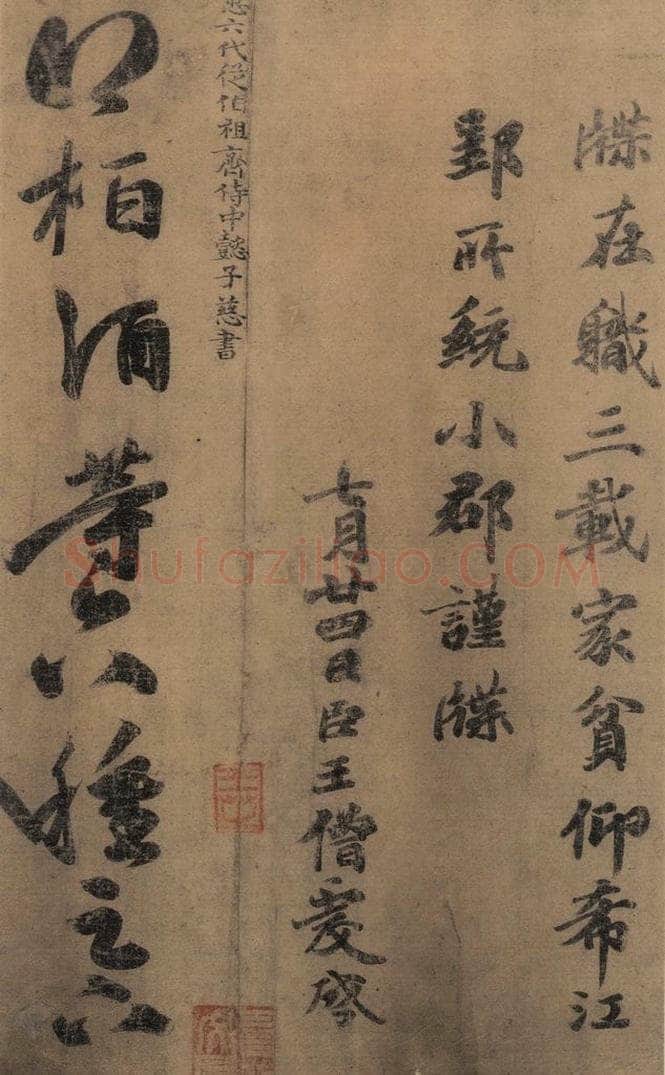 牒在職三載家貧仰希江
郢所統小郡謹牒
七月廿四日臣王僧虔啓
六代從伯祖齊侍中懿子慈書
得柏酒等六種足下
Shufaziliao.COM